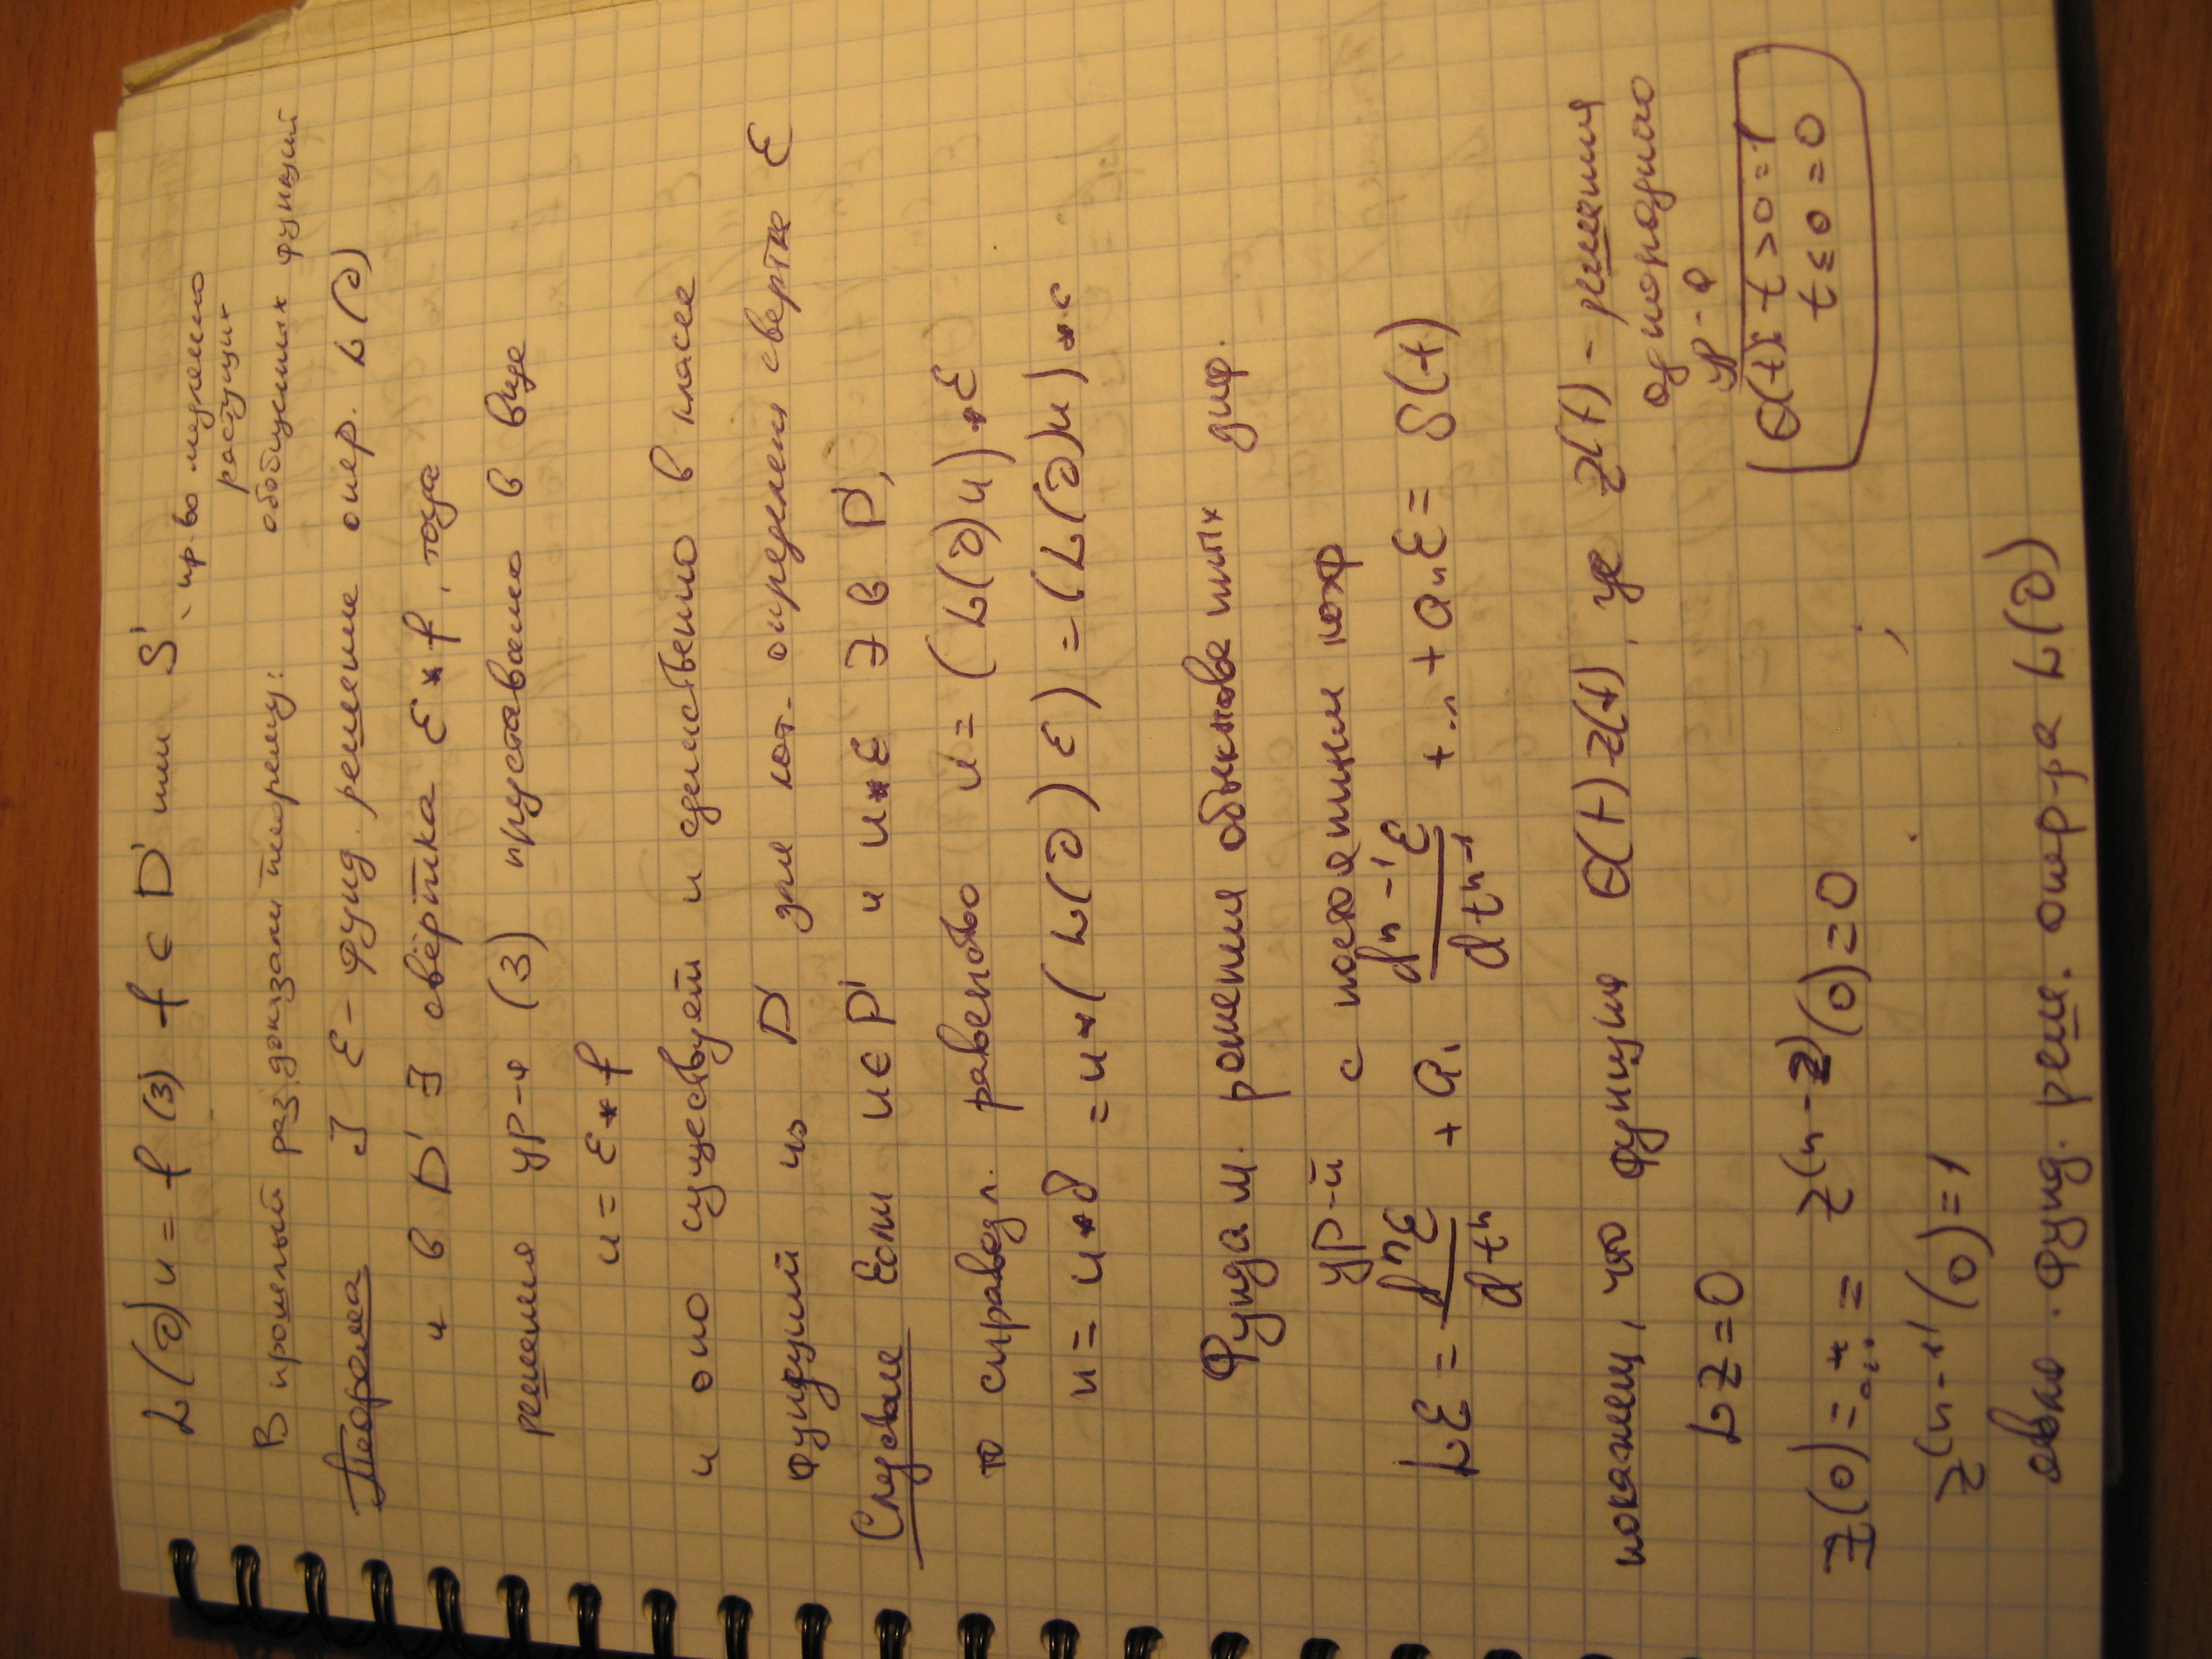 L(∂)u = f (3) f ∈ D' или S' - пр-во медленно
растущих
обобщенных функций
В прошлый раз доказали теорему:
Теорема ∃ ε - фунд. решение опер. L(∂)
и в D' ∃ свёртка ε * f, тогда
решения ур-я (3) представимо в виде
u = ε * f
и оно существует и единственно в классе
функций из D' для кот. определен свертка ε
Следствие Если u ∈ D' и u * ε ∃ в D',
то справедл. равенство u = (L(∂)u) * ε
u = u * δ = u * (L(∂)ε) = (L(∂)u) * ε
Фундам. решения обыкнове нных диф.
ур-й с постоянным коэф
Lε = dⁿε/dtⁿ + a₁ dⁿ⁻¹ε/dtⁿ⁻¹ + ... + aₙε = δ(t)
покажем, что функция θ(t)·z(t), где z(t) - решения
однородного
ур-я
Lz = 0
θ(t): t > 0 = 1
t ≤ 0 = 0
z(0) = ... = z⁽ⁿ⁻²⁾(0) = 0
z⁽ⁿ⁻¹⁾(0) = 1
явл. фунд. реше. опер-ра L(∂)